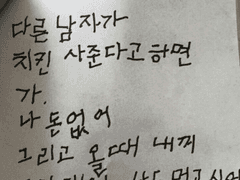 다른 남자가
치킨 사준다고 하면
가.
나 돈없어
그리고 올때 내꺼